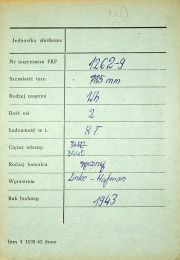 Jednostka służbowa
Nr inwentarza PKP 1262-9
Szerokość toru 785 mm
Rodzaj wagonu Wh
Ilość osi 2
Ładowność w t. 8 T
Ciężar własny 3400
Rodzaj hamulca ręczny
Wytwórnia Linke - Hofman
Rok budowy 1943